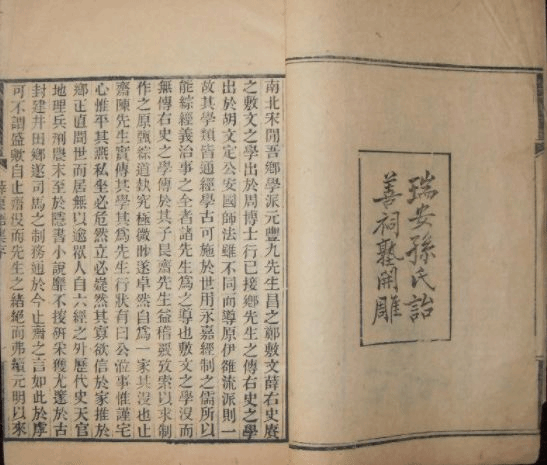 瑞安孫氏詒
善祠塾開雕
南北宋閒吾鄉學派元豐九先生昌之鄭敷文薛右史賡
之敷文之學出於周博士行已接鄉先生之傳右史之學
出於胡文定公安國師法雖不同而導原伊雒流派則一
故其學類皆通經學古可施於世用永嘉經制之儒所以
能綜經義治事之全者諸先生爲之導也敷文之學沒而
無傳右史之學傳於其子艮齋先生益稽覈攷索以求制
作之原甄綜道埶究極微眇遂卓然自爲一家其沒也止
齋陳先生實傳其學其爲先生行狀有曰公涖事惟謹宅
心惟平其燕私坐必危然立必嶷然其寡欲信於家推於
鄉正直聞世而居無以逾人自六經之外歷代史天官
地理兵刑農末至於隱書小說靡不搜研采獲尤邃於古
封建井田鄉遂司馬之制務通於今止齋之言如此於虖
可不謂盛歟自止齋沒而先生之緒絕而弗續元明以來